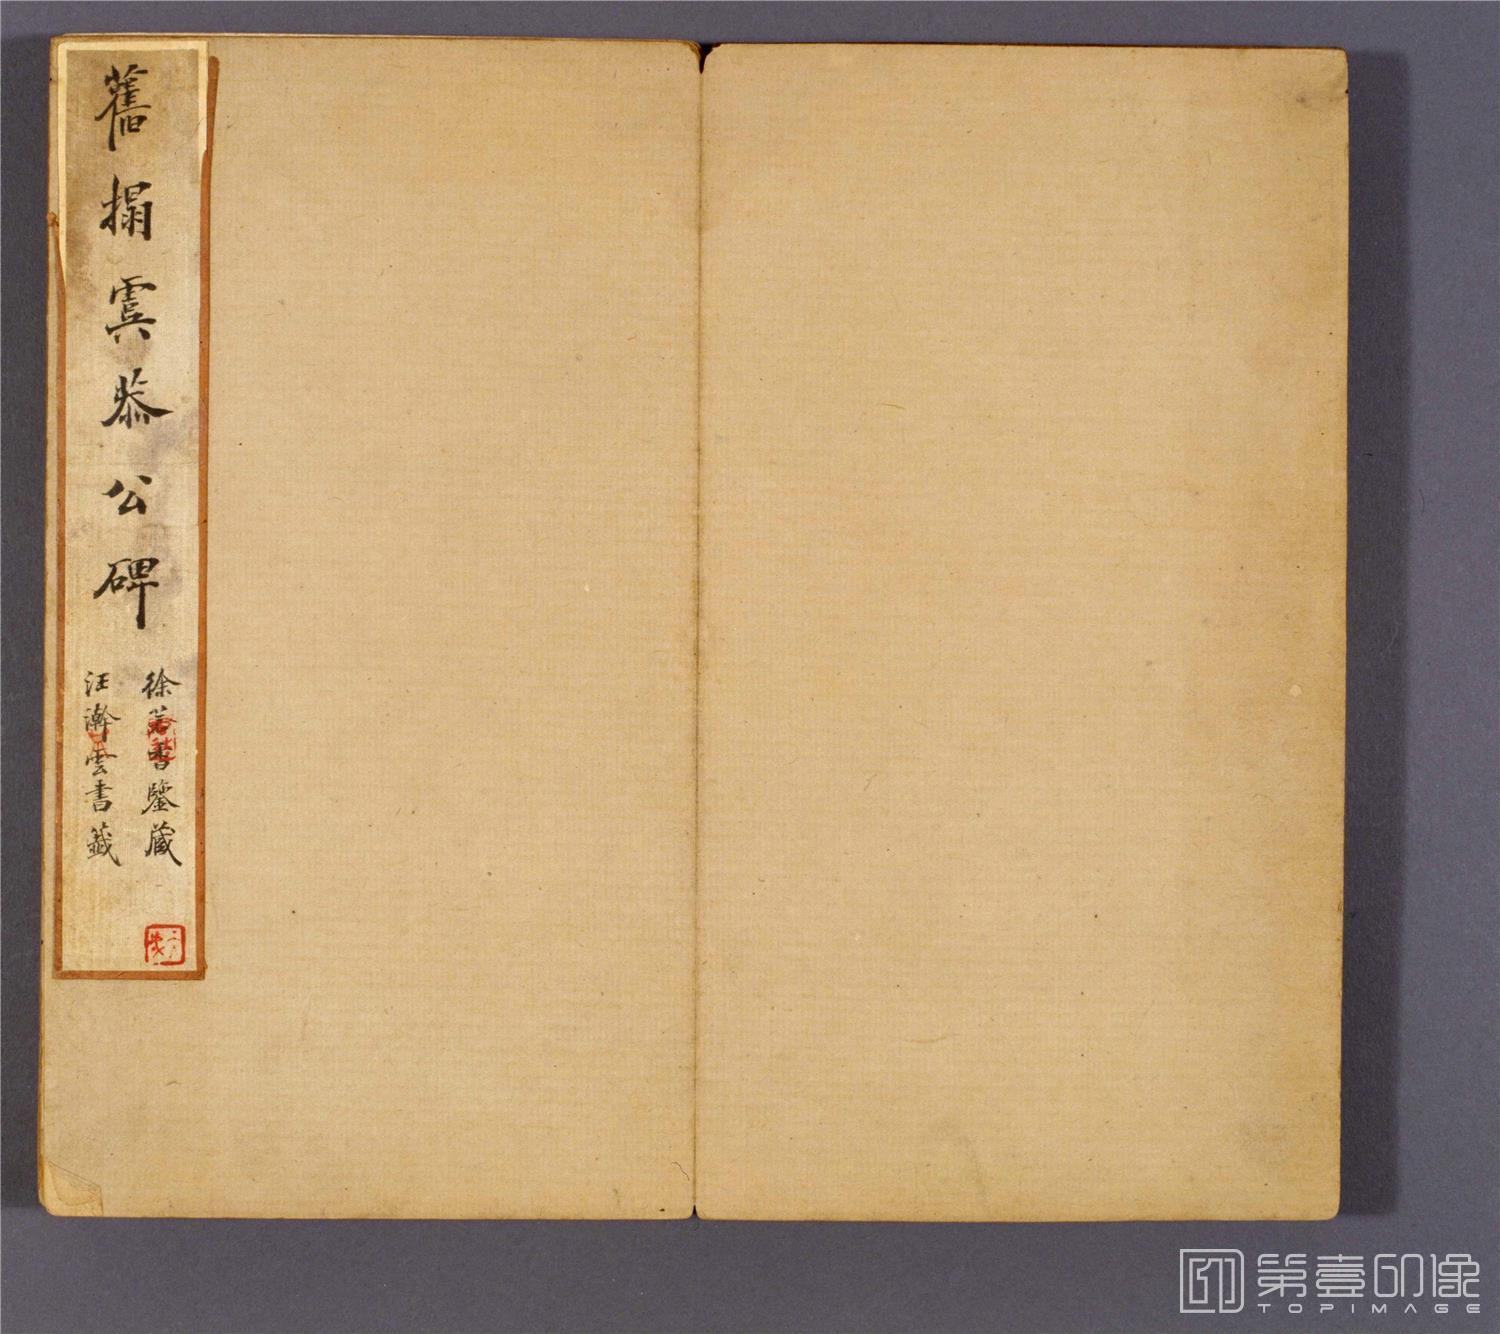 舊搨虞恭公碑
徐若書鑒藏
汪瀚雲書籤
第壹印像
TOPIMAGE